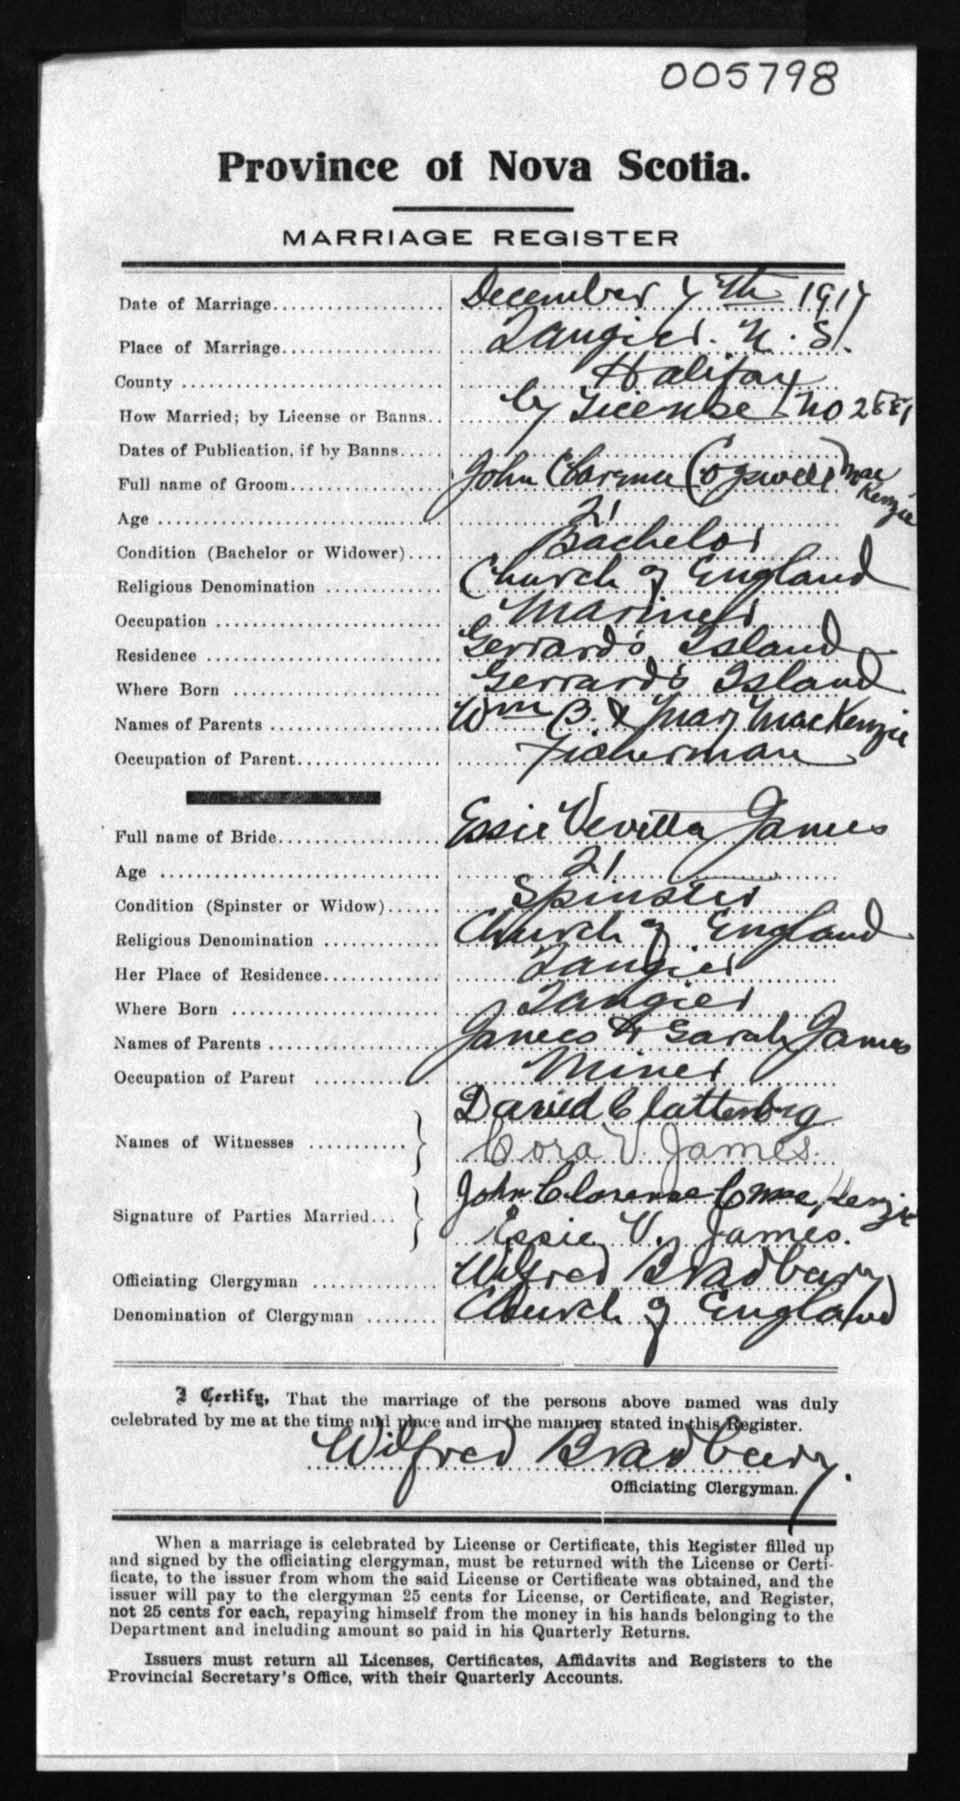 005798
Province of Nova Scotia.
MARRIAGE REGISTER
Date of Marriage.................... December 4th 1917
Place of Marriage.................. Tangier. N. S.
County ............................ Halifax
How Married; by License or Banns.. by License No
Dates of Publication, if by Banns.....
Full name of Groom................. John Clarence (Cogswell) MacKenzie
Age ............................... 21
Condition (Bachelor or Widower).... Bachelor
Religious Denomination ............. Church of England
Occupation ........................ Mariner
Residence ......................... Gerrard's Island
Where Born ........................ Gerrard's Island
Names of Parents .................. Wm B. & Mary MacKenzie
Occupation of Parent................ Fisherman
Full name of Bride.................. Essie Vevitta James
Age ............................... 21
Condition (Spinster or Widow)...... Spinster
Religious Denomination ............. Church of England
Her Place of Residence............. Tangier
Where Born ........................ Tangier
Names of Parents .................. James & Sarah James
Occupation of Parent ............... Miner
David Clattenburg
Names of Witnesses ...........
Cora V. James.
John Clarence C MacKenzie
Signature of Parties Married...
Essie V. James.
Officiating Clergyman .............. Wilfred Bradbury
Denomination of Clergyman ........ Church of England
I Certify, That the marriage of the persons above named was duly
celebrated by me at the time and place and in the manner stated in this Register.
Wilfred Bradbury.
Officiating Clergyman.
When a marriage is celebrated by License or Certificate, this Register filled up
and signed by the officiating clergyman, must be returned with the License or Certi-
ficate, to the issuer from whom the said License or Certificate was obtained, and the
issuer will pay to the clergyman 25 cents for License, or Certificate, and Register,
not 25 cents for each, repaying himself from the money in his hands belonging to the
Department and including amount so paid in his Quarterly Returns.
Issuers must return all Licenses, Certificates, Affidavits and Registers to the
Provincial Secretary's Office, with their Quarterly Accounts.